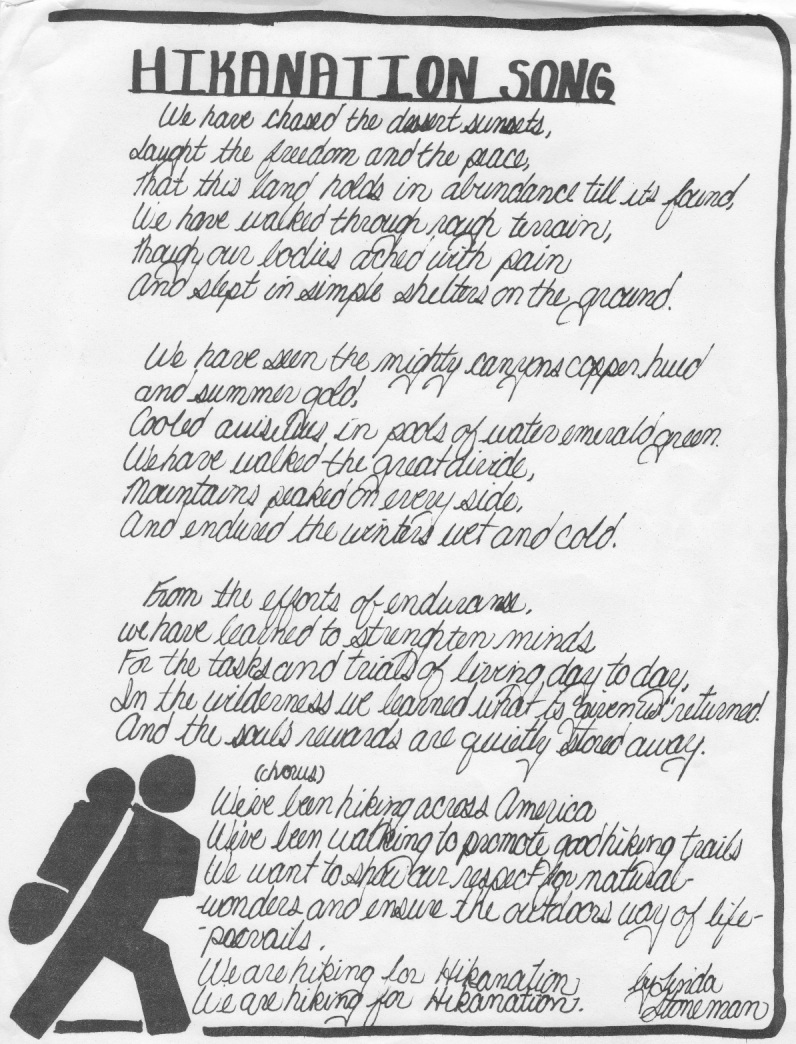 HIKANATION SONG
We have chased the desert sunsets,
Saught the freedom and the peace,
That this land holds in abundance till its found,
We have walked through rough terrain,
though our bodies ached with pain
And slept in simple shelters on the ground.
We have seen the mighty canyons copper hued
and summer gold,
Cooled ourselves in pools of water emerald green.
We have walked the great divide,
Mountains peaked on every side,
And endured the winters wet and cold.
From the efforts of endurance,
we have learned to strenghten minds
For the tasks and trials of living day to day,
In the wilderness we learned what is "given us" returned
And the souls rewards are quietly stored away.
(chorus)
We've been hiking across America
We've been walking to promote good hiking trails
We want to show our respect for natural-
wonders and ensure the outdoors way of life-
-prevails.
We are hiking for Hikanation
We are hiking for Hikanation.
by Linda
Stoneman